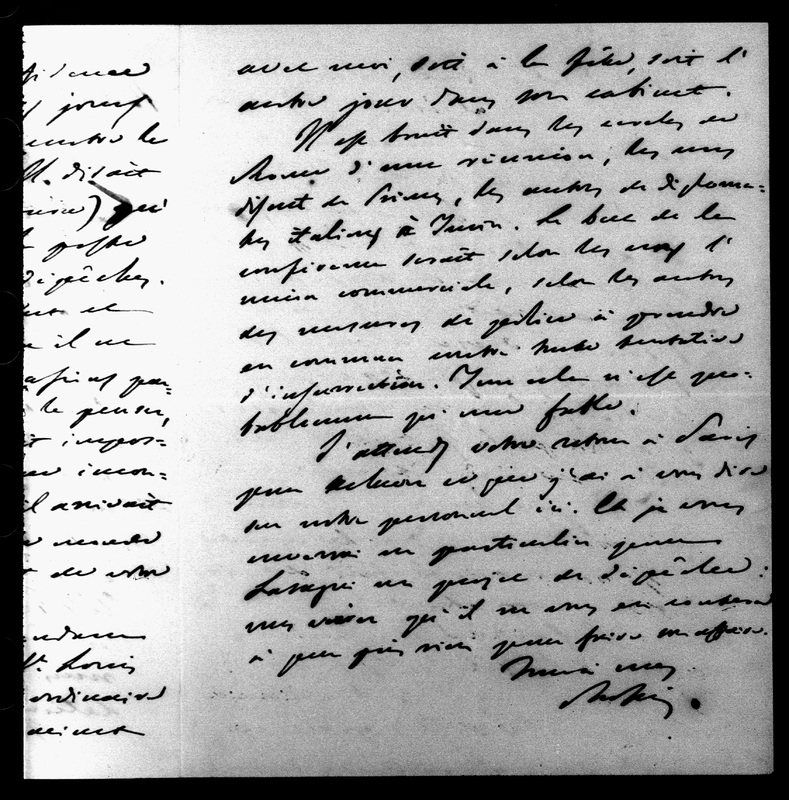 fidence
jours
contre le
M. disait
qui
poste
dépêches.
et
il ne
par=
le penser,
impos=
incon=
il arrivait
de votre
St. Louis
ordinaire
avec moi, soit à la fête, soit l'
autre jour dans son cabinet.
Il est bruit dans les cercles de
Rome d'une réunion, les uns
disent de Princes, les autres de diploma=
tes italiens à Turin. Le but de la
conférence serait selon les uns l'
union commerciale, selon les autres
des mesures de police à prendre
en commun contre toute tentative
d'insurrection. Tout cela n'est pro=
bablement qu'une fable.
J'attends votre retour à Paris
pour achever ce que j'ai à vous dire
sur notre personnel ici. Et je vous
enverrai en particulier pour
un projet de dépêche:
vous verrez qu'il ne vous en coutera
à peu près rien pour faire son affaire.
Tout à vous